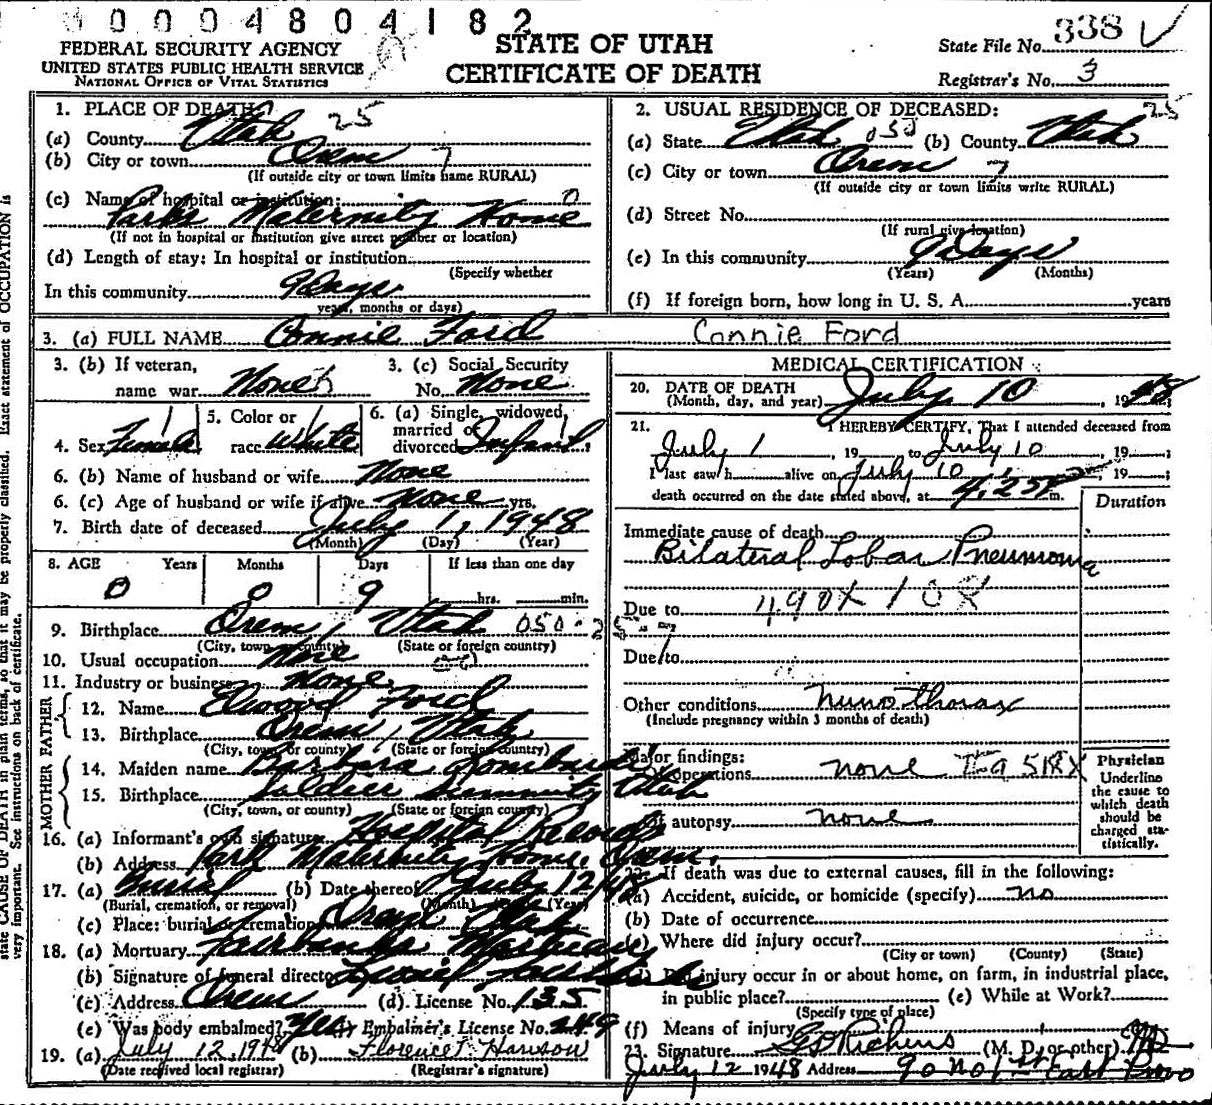 0004804182
FEDERAL SECURITY AGENCY
UNITED STATES PUBLIC HEALTH SERVICE
NATIONAL OFFICE OF VITAL STATISTICS
STATE OF UTAH
CERTIFICATE OF DEATH
State File No. 338
Registrar's No. 3
1. PLACE OF DEATH: 25
(a) County Utah
(b) City or town Orem 7
(If outside city or town limits name RURAL)
(c) Name of hospital or institution: 0
Parks Maternity Home
(If not in hospital or institution give street number or location)
(d) Length of stay: In hospital or institution
(Specify whether
In this community 9 Days
years, months or days)
2. USUAL RESIDENCE OF DECEASED: 25
(a) State Utah 050 (b) County Utah
(c) City or town Orem 7
(If outside city or town limits write RURAL)
(d) Street No.
(If rural give location)
(e) In this community 9 Days
(Years) (Months)
(f) If foreign born, how long in U. S. A. years
3. (a) FULL NAME Connie Ford Connie Ford
3. (b) If veteran,
name war None
3. (c) Social Security
No. None
4. Sex Female
5. Color or
race White
6. (a) Single, widowed,
married or
divorced Infant
6. (b) Name of husband or wife None
6. (c) Age of husband or wife if alive None yrs.
7. Birth date of deceased July 1, 1948
(Month) (Day) (Year)
8. AGE Years Months Days If less than one day
0 0 9 hrs. min.
9. Birthplace Orem Utah 050
(City, town or county) (State or foreign country)
10. Usual occupation None
11. Industry or business None
FATHER
12. Name Elwood Ford
13. Birthplace Orem, Utah
(City, town, or county) (State or foreign country)
MOTHER
14. Maiden name Barbara Lombard
15. Birthplace Soldier Summit, Utah
(City, town, or county) (State or foreign country)
16. (a) Informant's own signature Hospital Records
(b) Address Park Maternity Home, Orem.
17. (a) Burial (b) Date thereof July 12/48
(Burial, cremation, or removal) (Month) (Day) (Year)
(c) Place: burial or cremation Orem, Utah
18. (a) Mortuary Fairbanks Mortuary
(b) Signature of funeral director
(c) Address Orem (d). License No. 135
(e) Was body embalmed? Yes (f) Embalmer's License No. 249
19. (a) July 12, 1948 (b) Florence Harrison
(Date received local registrar) (Registrar's signature)
MEDICAL CERTIFICATION
20. DATE OF DEATH
(Month, day, and year) July 10, 1948
21. I HEREBY CERTIFY, That I attended deceased from
July 1, 19 to July 10, 19 ;
I last saw h alive on July 10, 19 ;
death occurred on the date stated above, at 4:25 P m.
Duration
Immediate cause of death
Bilateral Lobar Pneumonia
Due to 490X
Due to
Other conditions
(Include pregnancy within 3 months of death)
Major findings:
Of operations none
Of autopsy none
Physician
Underline
the cause to
which death
should be
charged sta-
tistically.
22. If death was due to external causes, fill in the following:
(a) Accident, suicide, or homicide (specify) no
(b) Date of occurrence
(c) Where did injury occur?
(City or town) (County) (State)
(d) Did injury occur in or about home, on farm, in industrial place,
in public place? (e) While at Work?
(Specify type of place)
(f) Means of injury
23. Signature G S Richins (M. D. or other) MD
July 12 1948 Address 90 No 1st East Provo
state CAUSE OF DEATH in plain terms, so that it may be properly classified. Exact statement of OCCUPATION is
very important. See instructions on back of certificate.